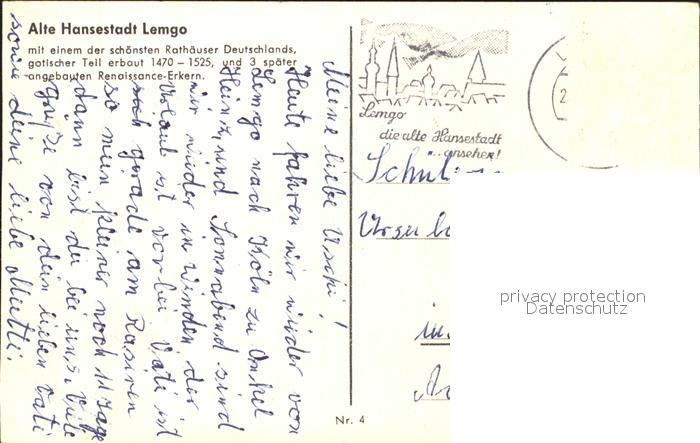 Alte Hansestadt Lemgo
mit einem der schönsten Rathäuser Deutschlands,
gotischer Teil erbaut 1470 – 1525, und 3 später
angebauten Renaissance-Erkern.
Meine liebe Uschi!
Heute fahren wir wieder von
Lemgo nach Köln zu Onkel
Heinz, und Sonnabend sind
wir wieder in Winden der
Urlaub ist vorbei Vati ist
sich gerade am Rasiren
so mein kleiner noch 11 Tage
dann bist du bei uns, viele
grüße von dein lieben Vati
sowie deine liebe Mutti.
Lemgo
die alte Hansestadt
...ansehen!
Schül
in
Nr. 4
privacy protection
Datenschutz